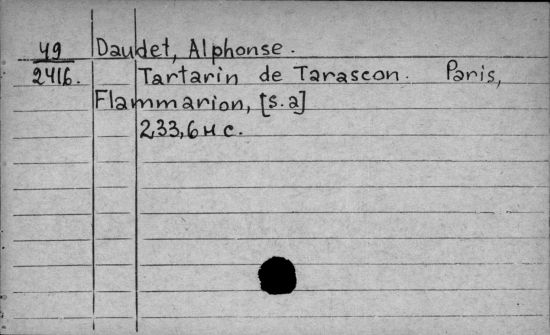 49 Daudet, Alphonse.
2416. Tartarin de Tarascon. Paris,
Flammarion, [s.a]
233,6 н с.